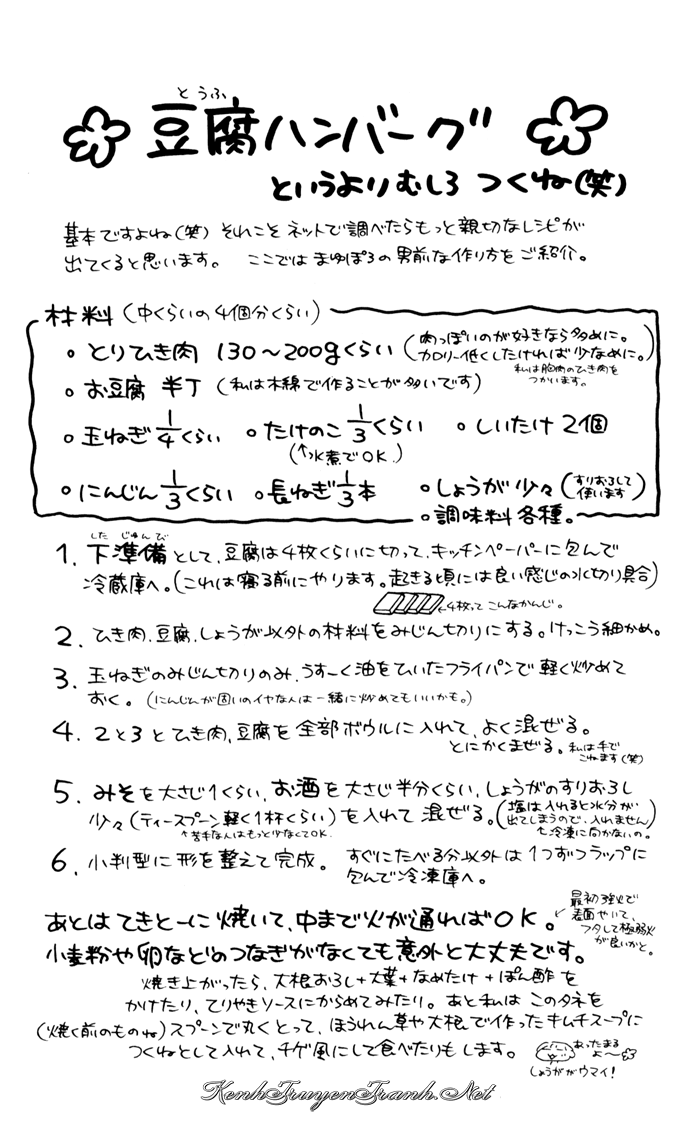 とうふ
豆腐ハンバーグ
というよりむしろ つくね(笑)
基本ですよね(笑) それこそネットで調べたらもっと親切なレシピが
出てくると思います。 ここではまゆぽろの男前な作り方をご紹介。
材料(中くらいの4個分くらい)
◦とりひき肉 130〜200gくらい(肉っぽいのが好きなら多めに。
カロリー低くしたければ少なめに。)
私は胸肉のひき肉を
つかいます。
◦お豆腐 半丁(私は木綿で作ることが多いです)
◦玉ねぎ1/4くらい ◦たけのこ1/3くらい ◦しいたけ2個
(↑水煮でOK.)
◦にんじん1/3くらい ◦長ねぎ1/3本 ◦しょうが少々(すりおろして
使います)
◦調味料各種。
した じゅんび
1. 下準備として、豆腐は4枚くらいに切って、キッチンペーパーに包んで
冷蔵庫へ。(これは寝る前にやります。起きる頃には良い感じの水切り具合)
←4枚ってこんなかんじ。
2. ひき肉、豆腐、しょうが以外の材料をみじん切りにする。けっこう細かめ。
3. 玉ねぎのみじん切りのみ、うすーく油をひいたフライパンで軽く炒めて
おく。(にんじんが固いのイヤな人は一緒に炒めてもいいかも。)
4. 2と3とひき肉、豆腐を全部ボウルに入れて、よく混ぜる。
とにかくまぜる。私は手で
こねます(笑)
5. みそを大さじ1くらい、お酒を大さじ半分くらい、しょうがのすりおろし
少々(ティースプーン軽く1杯くらい)を入れて混ぜる。(塩は入れると水分が
出てしまうので、入れません)
↑苦手な人はもっと少なくてOK.
↑冷凍に向かないの。
6. 小判型に形を整えて完成。 すぐにたべる分以外は1つずつラップに
包んで冷凍庫へ。
あとはてきとーに焼いて、中まで火が通ればOK。
最初強火で
表面やいて、
フタして極弱火
が良いかと。
小麦粉や卵などのつなぎがなくても意外と大丈夫です。
焼き上がったら、大根おろし+大葉+なめたけ+ぽん酢を
かけたり、てりやきソースにからめてみたり。あと私はこのタネを
(焼く前のものね)スプーンで丸くとって、ほうれん草や大根で作ったキムチスープに
つくねとして入れて、チゲ風にして食べたりもします。
あったまる
よ〜
しょうががウマイ!
KenhTruyenTranh.Net